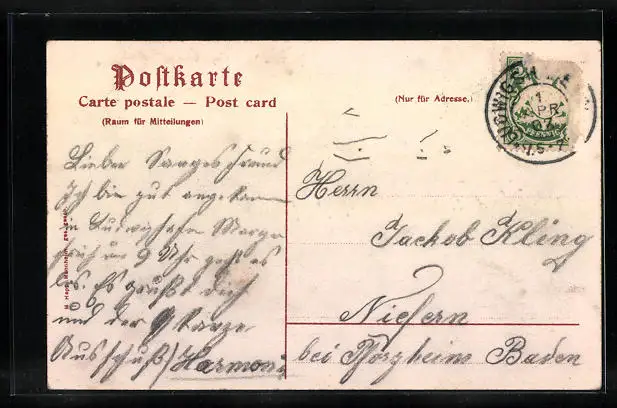 Postkarte
Carte postale — Post card
(Raum für Mitteilungen)
(Nur für Adresse.)
1
APR
07
PFENNIG
Lieber Sangesfreund
Ich bin gut angekommen
in Ludwigshafen Morgen
früh um 9 Uhr geht es
los. Es grüßt dich
und der ganze
Ausschuß / Harmonie
Herrn
Jachob Kling
Niefern
bei Pforzheim Baden